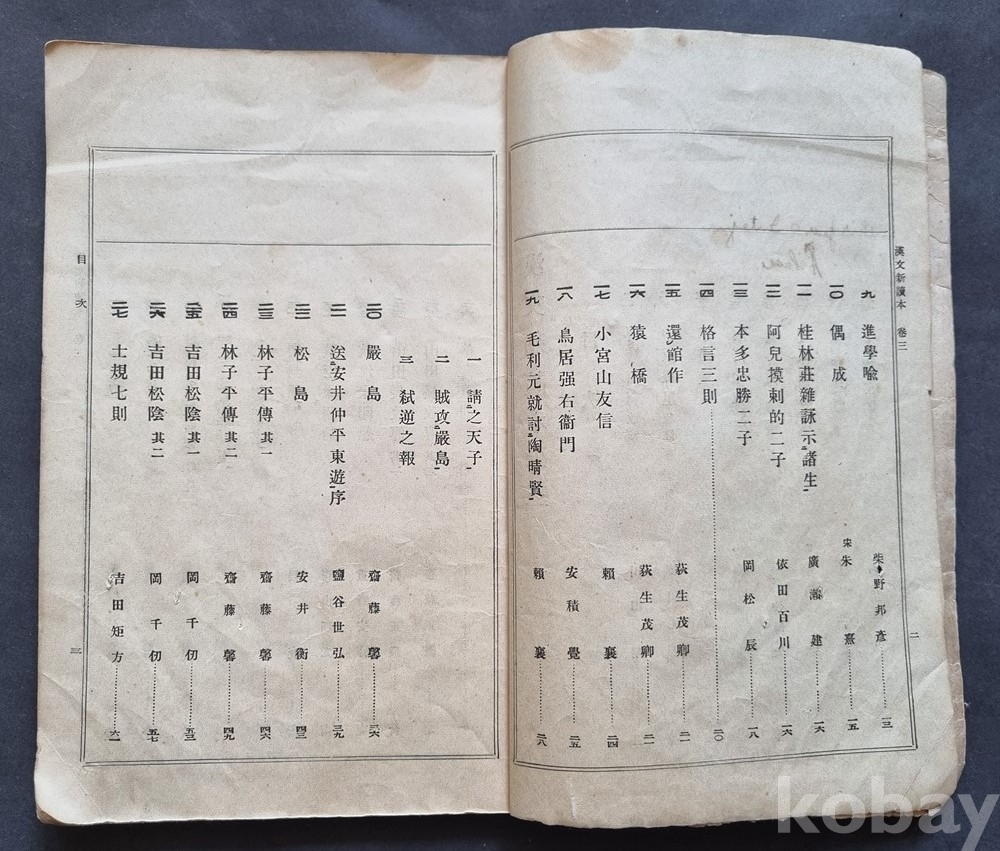 漢文新讀本 卷三
二
九 進學喩 柴野邦彥 一三
一〇 偶成 宋 朱熹 一五
一一 桂林莊雜詠示諸生 廣瀨建 一六
一二 阿兒摸剌的二子 依田百川 一六
一三 本多忠勝二子 岡松辰 一八
一四 格言三則 二〇
一五 還館作 荻生茂卿 二一
一六 猿橋 荻生茂卿 二一
一七 小宮山友信 賴襄 二四
一八 鳥居强右衞門 安積覺 二五
一九 毛利元就討陶晴賢 賴襄 二八
一 請之天子
二 賊攻嚴島
三 弑逆之報
二〇 嚴島 齋藤馨 三六
二一 送安井仲平東遊序 鹽谷世弘 三九
二二 松島 安井衡 四三
二三 林子平傳 其一 齋藤馨 四六
二四 林子平傳 其二 齋藤馨 四九
二五 吉田松陰 其一 岡千仞 五三
二六 吉田松陰 其二 岡千仞 五七
二七 士規七則 吉田矩方 六一
目次
三
kobay